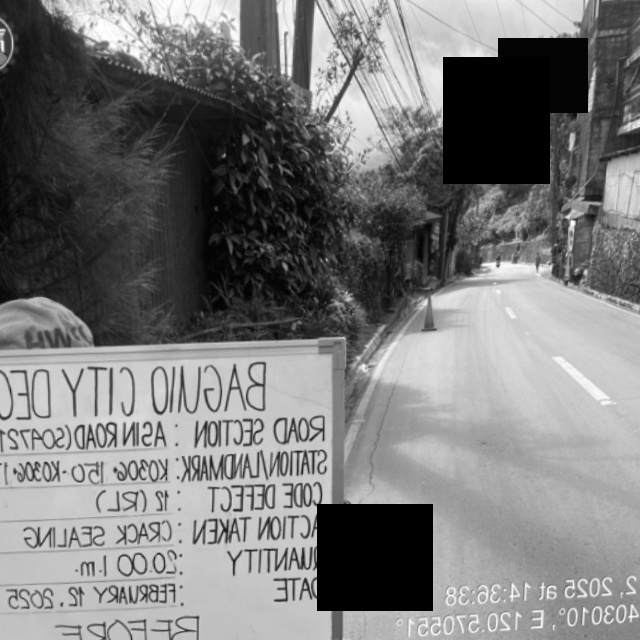 BAGUIO CITY DEO
ROAD SECTION : ASIN ROAD (S04721
STATION/LANDMARK: K0306+150 - K0306+1
CODE DEFECT : 12 (RL)
ACTION TAKEN : CRACK SEALING
QUANTITY : 20.00 l.m.
DATE : FEBRUARY 12, 2025
BEFORE
2, 2025 at 14:36:38
403010°, E 120.570551°